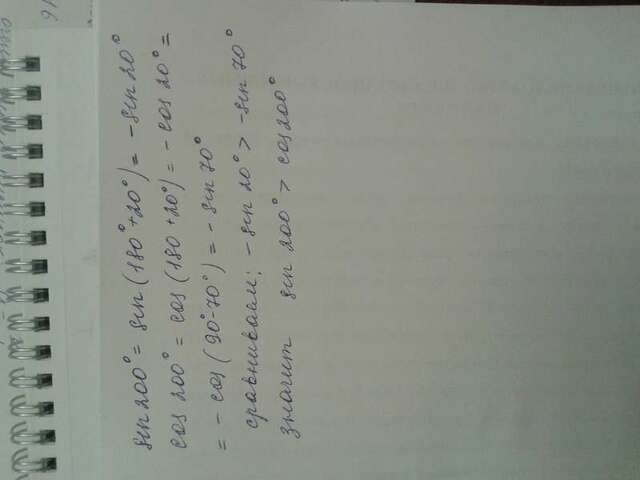 sin 200° = sin (180° + 20°) = - sin 20°
cos 200° = cos (180 + 20°) = - cos 20° =
= - cos (90°-70°) = - sin 70°
сравниваем: - sin 20° > - sin 70°
значит sin 200° > cos 200°